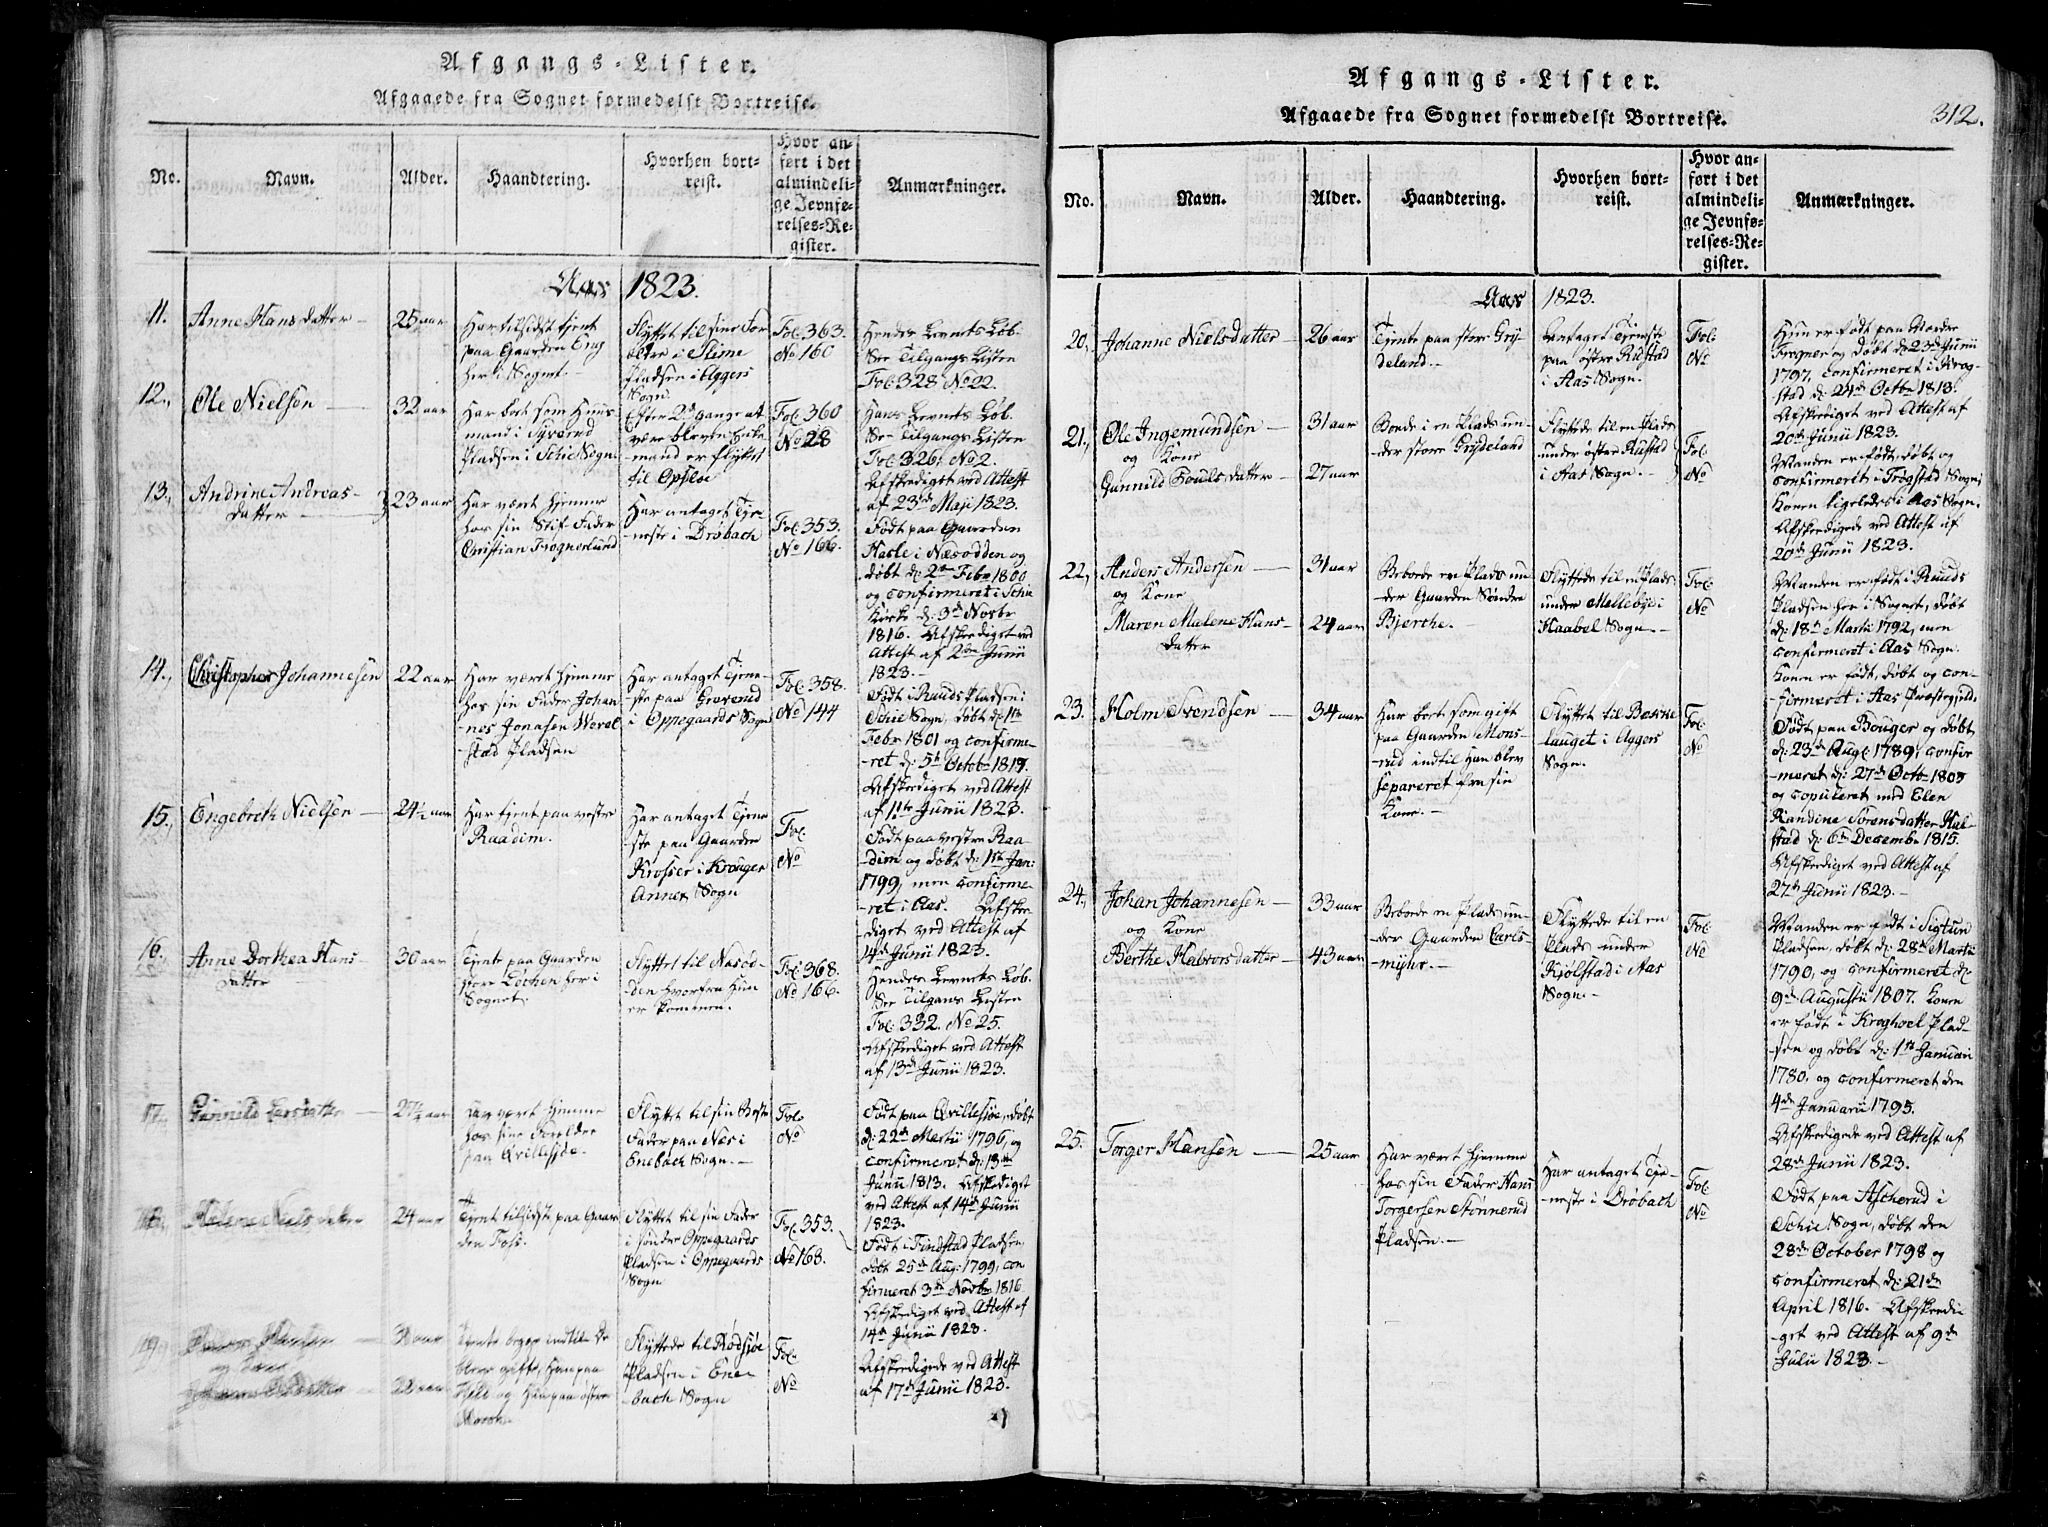 Afgangs-Lister.
Afgaaede fra Sognet formedelst Bortreise.
No.
Navn.
Alder.
Haandtering.
Hvorhen bort-
reist.
Hvor an-
ført i det
almindeli-
ge Jevnfø-
relses-Re-
gister.
Anmærkninger.
Aar 1823.
11.
Anne Hans datter
25 aar
Har tilsidst tjent
paa Gaarden Eng
her i Sognet.
Flyttet til sine For
ældre i Slime
Pladsen i Aggers
Sogn.
Fol: 363.
No 160
Hendes Levnets Løb.
See Tilgangs Listen
Fol: 328 No 22.
12.,
Ole Nielsen
32 aar
Har boet som Huus-
mand i Syverud
Pladsen i Schie Sogn.
Efter 2de gange at
være bleven Enke
mand er flyttet
til Opsloe
Fol: 360
No 28
Hans Levnets Løb.
See Tilgangs Listen
Fol: 326, No 2.
Afskediget ved Attest
af 23de Maji 1823.
13.,
Andrine Andreas-
datter
23 aar
Har været hjemme
hos sin Stif Fader
Christian Frognerlund
Har antaget Tje-
neste i Drøbach
Fol: 353.
No 166.
Født paa Gaarden
Hasle i Næsodden og
døbt d: 2den Febr 1800
og confirmeret i Schie
Kirke d: 3de Novbr
1816. Afskediget ved
Attest af 2den Junii
1823.
14.,
Christopher Johannesen
22 aar
Har været hjemme
hos sin Fader Johan-
nes Jonasen Wevel
stad Pladsen
Har antaget Tjene-
ste paa Greverud
i Oppegaards Sogn
Fol: 358.
No 144
Født i Ruuds Pladsen i
Schie Sogn, døbt d: 1te
Febr 1801 og confirme-
ret d: 5te Octobr 1817.
Afskediget ved Attest
af 11te Junii 1823.
15.,
Engebreth Nielsen
24½ aar
Har tjent paa vestre
Raadim.
Har antaget Tjene
ste paa Gaarden
Krosser i Krouger
Annex Sogn
Fol:
No
Født paa vestre Raa-
dim og døbt d: 1ste Jan:
1799, men confirme-
ret i Aas. Afske-
diget ved Attest af
14de Junii 1823.
16.
Anne Dorthea Hans-
datter
30 aar
Tjente paa Gaarden
store Løchen her i
Sognet.
Flyttet til Næsod-
den hvorfra Hun
er kommen.
Fol: 368.
No 166.
Hendes Levnets Løb.
See Tilgans Listen
Fol: 332. No 25.
Afskediget ved Attest
af 13de Junii 1823.
17.
Gunnild Larsdatter
27½ aar
Har været hjemme
hos sine Forældre
paa Qvillesiøe.
Flyttet til sin Beste
Fader paa Næs i
Enebach Sogn.
Fol:
No
Født paa Qvillesiøe, døbt
d: 22de Martii 1796, og
confirmeret d: 13de
Junii 1813. Afskediget
ved Attest af 14de Junii
1823.
18.,
Helene Niels datter
24 aar
Tjent tilsidst paa Gaar
den Foss.
Flyttet til sin Fader
i sønder Oppegaards
Pladsen i Oppegaards
Sogn
Fol: 353.
No 168.
Født i Findstad Pladsen,
døbt 25de Aug: 1799, con
firmeret 3de Novbr 1816
Afskediget ved Attest af
14de Junii 1823.
19
og Kone
aar
Tjente begge indtil De
bleve gifte, Han paa
og Hun paa østre
Flyttede til Rødsiøe
Pladsen i Ene-
bach Sogn
Fol:
No
Afskedigede ved Attest
af 17de Junii 1823.
Afgangs-Lister.
Afgaaede fra Sognet formedelst Bortreise.
312.
No.
Navn.
Alder.
Haandtering.
Hvorhen bort-
reist.
Hvor an-
ført i det
almindeli-
ge Jevnfø-
relses-Re-
gister.
Anmærkninger.
Aar 1823.
20,
Johanne Nielsdatter
26 aar
Tjente paa store Gry-
deland.
Antaget Tjeneste
paa østre Rustad
i Aas Sogn.
Fol:
No
Hun er født paa Nordre
Frogner og døbt d: 23de Junii
1797, confirmeret i Krog-
stad d: 24de Octbr 1813.
Afskediget ved Attest af
20de Junii 1823.
21.,
Ole Ingemundsen
og Kone
Gunnild Pouls datter
31 aar
27 aar
Boede i en Plads un-
der store Grydeland
Flyttede til en Plads
under østre Rustad
i Aas Sogn.
Fol:
No
Manden er født, døbt og
confirmeret i Trøgstad Sogn,
Konen ligeledes i Aas Sogn.
Afskedigede ved Attest af
20de Junii 1823.
22,
Anders Andersen
og Kone
Maren Malene Hans-
datter
31 aar
24 aar
Beboede en Plads un
der Gaarden Søndre
Bjerche.
Flyttede til en Plads
under Mellebye i
Haabel Sogn.
Fol:
No
Manden er født i Ruuds
Pladsen her i Sognet, døbt
d: 18de Martii 1792, men
confirmeret i Aas Sogn.
Konen er født, døbt og con-
firmeret i Aas Præstegjeld.
23.
Holm Svendsen
34 aar
Har boet som gift
paa Gaarden Mons-
rud indtil Han blev
separeret fra sin
Kone.
Flyttet til Bække
lauget i Aggers
Sogn.
Fol:
No
Født paa Bouger og døbt
d: 23de Aug: 1789, confir
meret d: 27de Octbr 1805
og copuleret med Elen
Randine Sørensdatter Hal-
stad d: 6te Decembr 1815.
Afskediget ved Attest af
27de Junii 1823.
24.,
Johan Johannesen
og Kone
Berthe Halvorsdatter
33 aar
43 aar
Beboede en Plads un-
der Gaarden Carls-
myhr.
Flyttede til en
Plads under
Kjølstad i Aas
Sogn.
Fol:
No
Manden er født i Sigtun
Pladsen, døbt d: 28de Martii
1790, og confirmeret d:
9de Augustii 1807. Konen
er født i Kroghoel Plad-
sen og døbt d: 1ste Januari
1780, og confirmeret den
4de Januarii 1795.
Afskedigede ved Attest af
28de Junii 1823.
25.
Torger Hansen
25 aar
Har været hjemme
hos sin Fader Hans
Torgersen Stønnerud
Pladsen.
Har antaget Tje-
neste i Drøbach
Fol:
No
Født paa Ascherud i
Schie Sogn, døbt den
28de October 1798 og
confirmeret d: 21de
April 1816. Afskedi-
get ved Attest af 9de
Julii 1823.